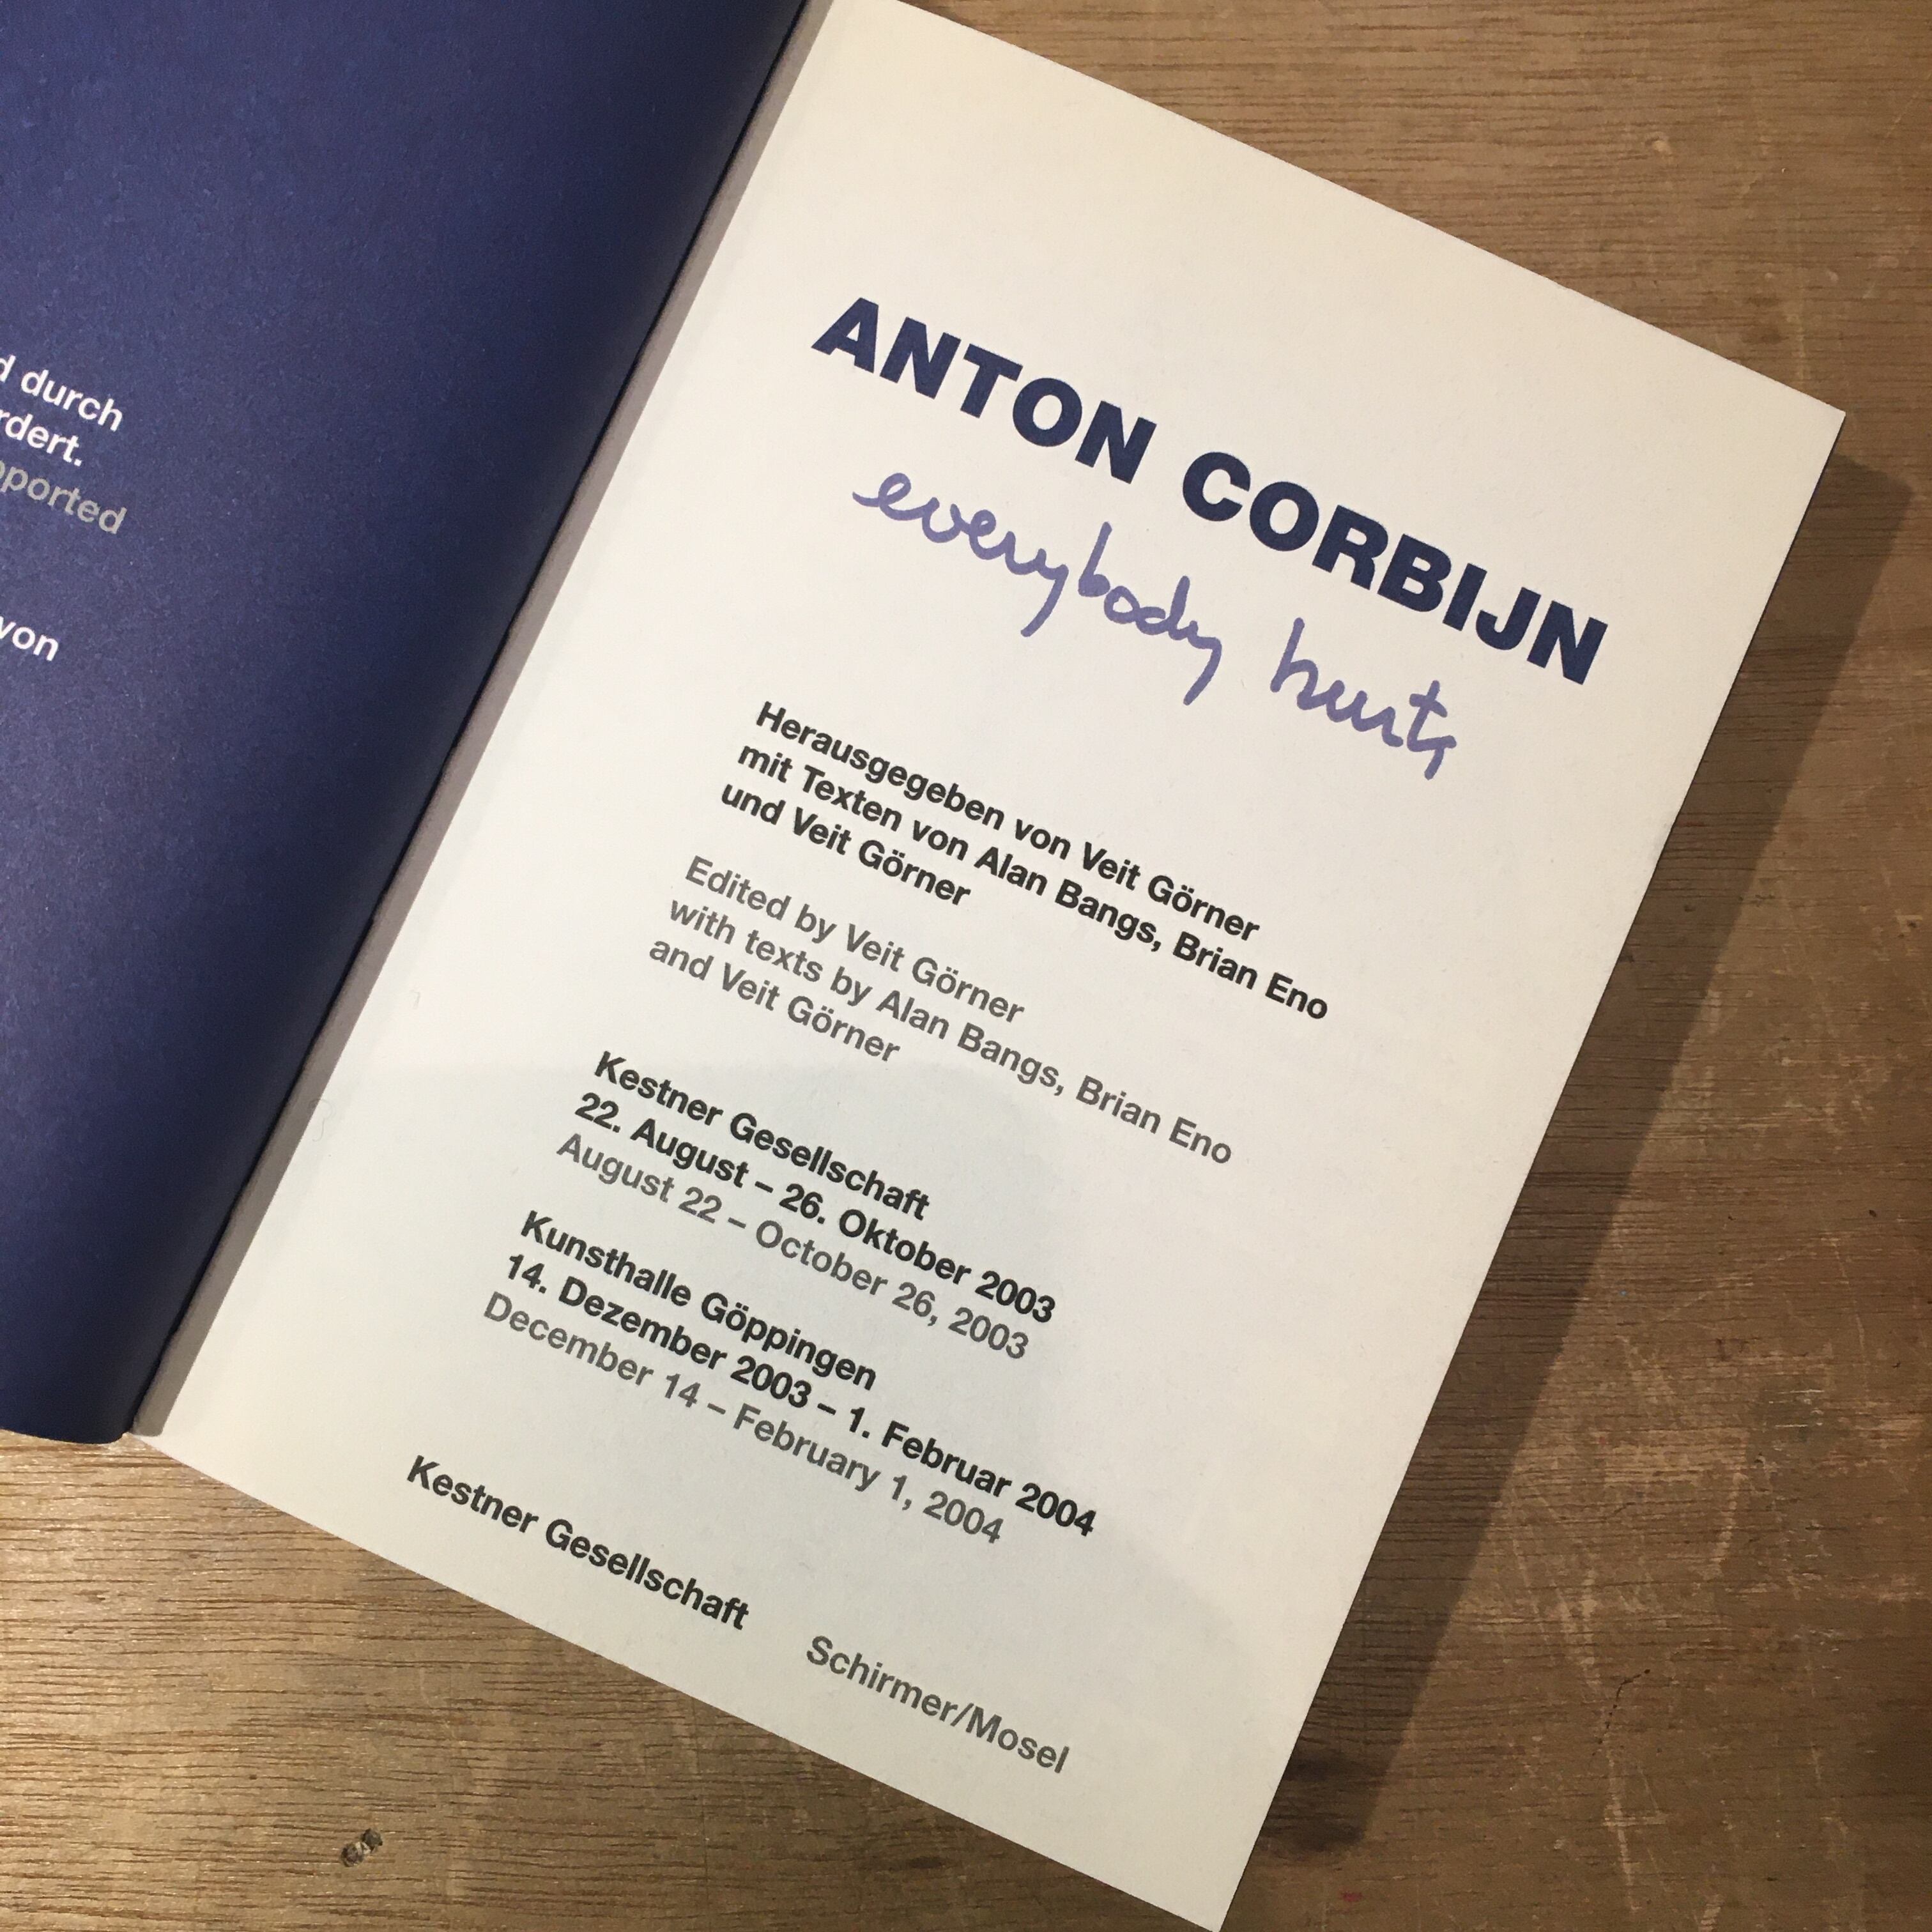 d durch
rdert.
pported
von
ANTON CORBIJN
everybody hurts
Herausgegeben von Veit Görner
mit Texten von Alan Bangs, Brian Eno
und Veit Görner
Edited by Veit Görner
with texts by Alan Bangs, Brian Eno
and Veit Görner
Kestner Gesellschaft
22. August – 26. Oktober 2003
August 22 – October 26, 2003
Kunsthalle Göppingen
14. Dezember 2003 – 1. Februar 2004
December 14 – February 1, 2004
Kestner Gesellschaft
Schirmer/Mosel